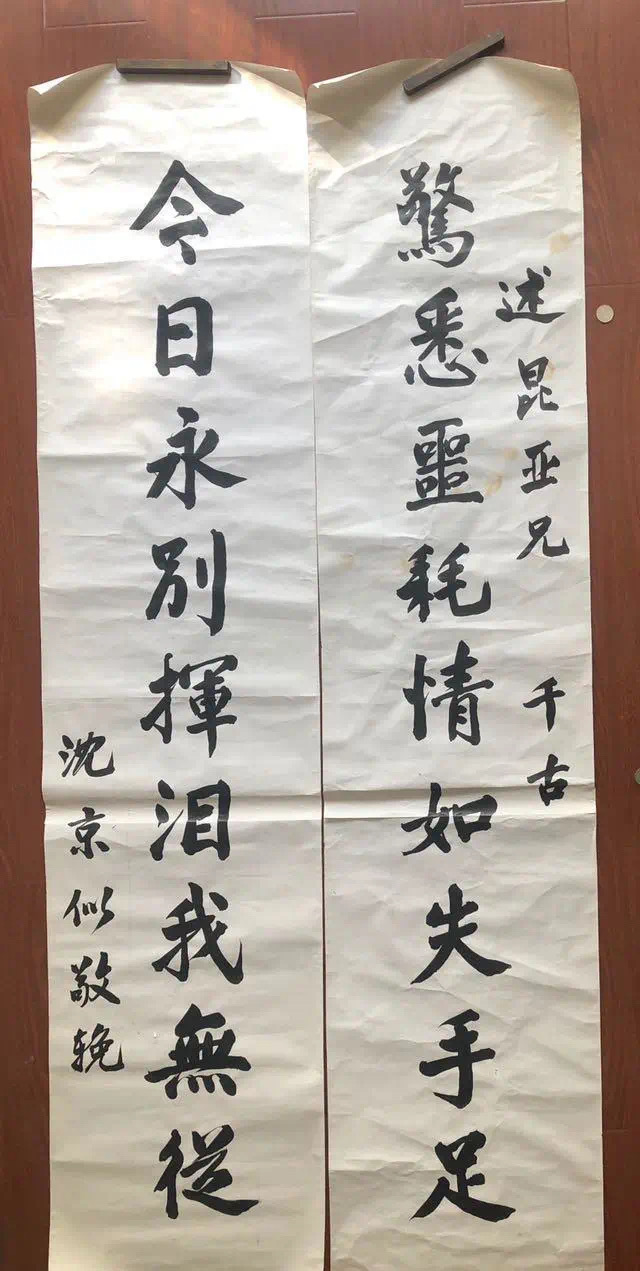 述昆亚兄 千古
驚悉噩耗情如失手足
今日永別揮泪我無從
沈京似敬輓